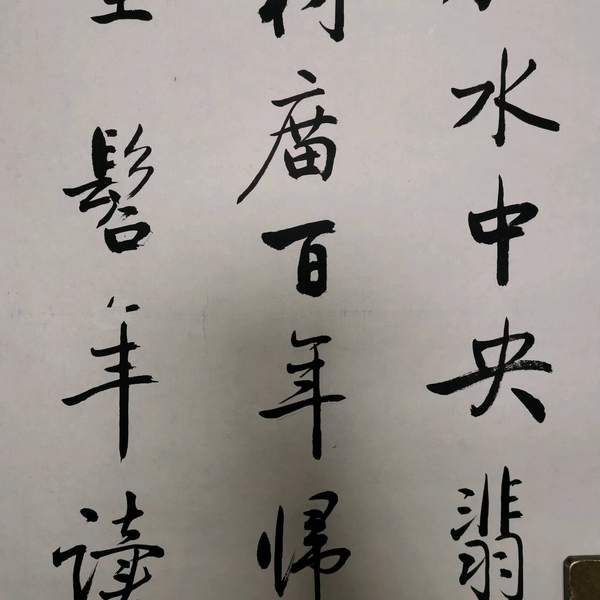 水中央翡
庿百年帰
髫年讀